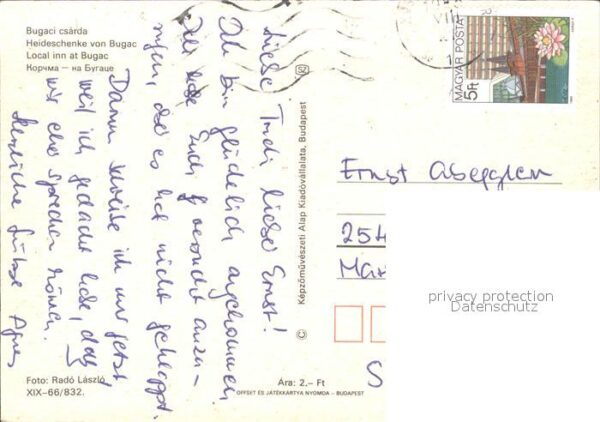 Bugaci csárda
Heideschenke von Bugac
Local inn at Bugac
Корчма — на Бугаце
Liebe Trudi, liebe Ernst!
Ich bin glücklich angekommen
Ich habe Euch
daß es hat nicht geklappt.
Darum schreibe ich nur jetzt
weil ich gedacht habe, daß
wir eher sprechen können.
herzliche Grüße Agnes
Foto: Radó László
XIX–66/832.
© Képzőművészeti Alap Kiadóvállalata, Budapest
Ára: 2.– Ft
OFFSET ÉS JÁTÉKKÁRTYA NYOMDA – BUDAPEST
MAGYAR POSTA
5Ft
Ernst Abegglen
254
Mar
S
privacy protection
Datenschutz